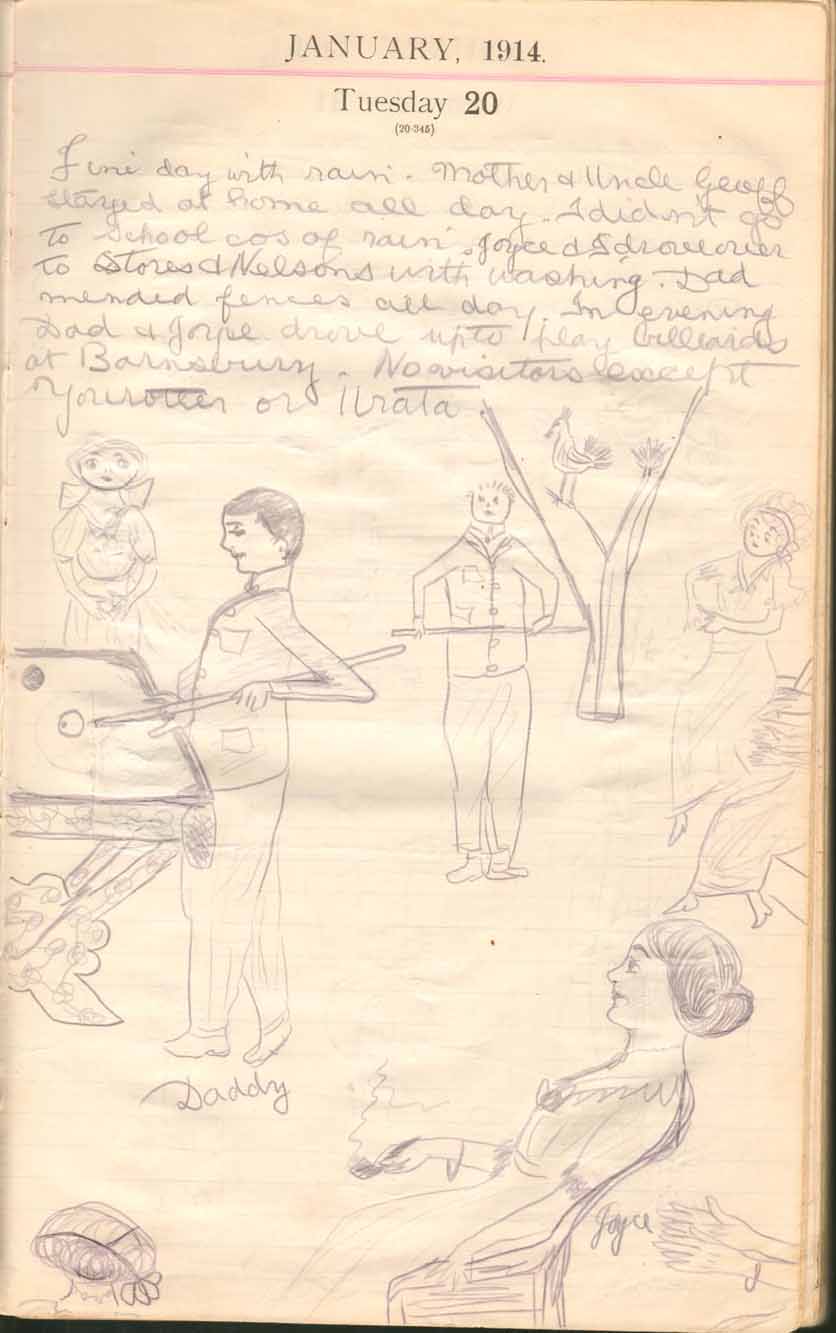 JANUARY, 1914.
Tuesday 20
(20-345)
Fine day with rain. Mother & Uncle Geoff
stayed at home all day. I didn't go
to school cos of rain. Joyce & I drove over
to Stores & Nelsons with washing. Dad
mended fences all day. In evening
Dad & Joyce drove up to play billiards
at Barnsbury. No visitors except
or
Daddy
Joyce